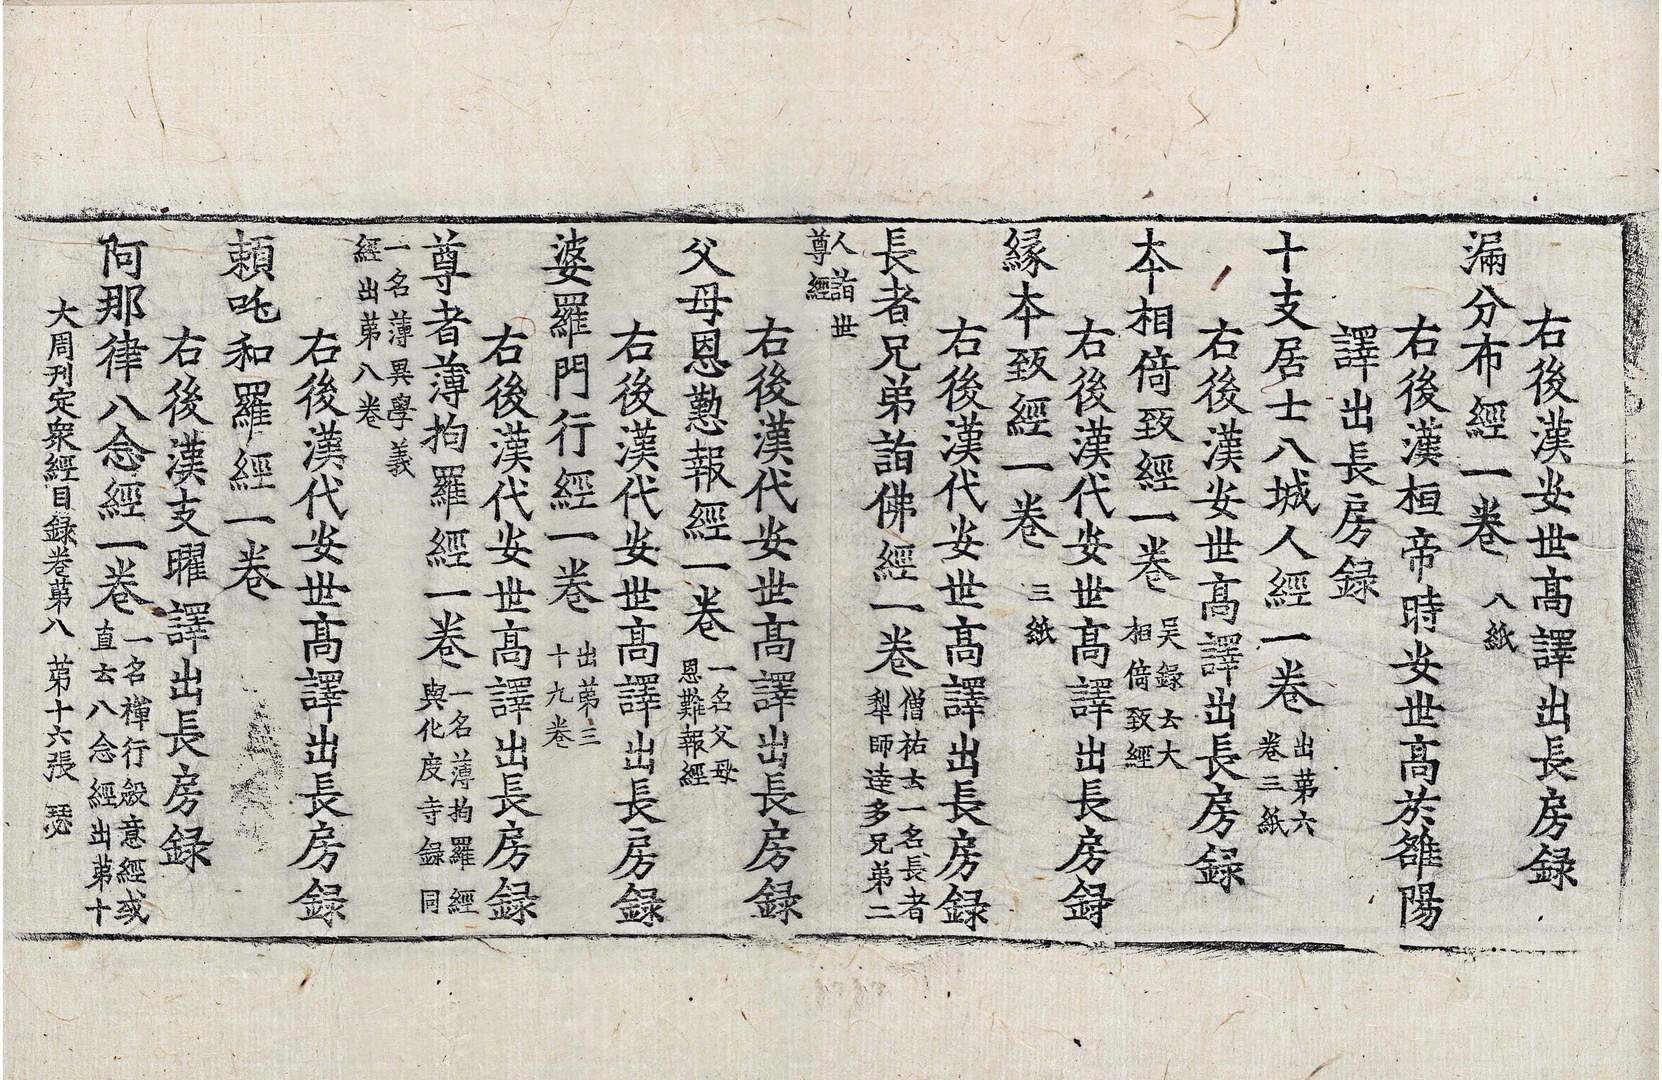 右後漢安世高譯出長房録
漏分布經一卷 八紙
右後漢桓帝時安世高於雒陽
譯出長房録
十支居士八城人經一卷 出第六
卷三紙
右後漢安世高譯出長房録
本相倚致經一卷 吴録云大
相倚致經
右後漢代安世高譯出長房録
縁本致經一卷 三紙
右後漢代安世高譯出長房録
長者兄弟詣佛經一卷 僧祐云一名長者
犁師達多兄弟二
人詣世
尊經
右後漢代安世高譯出長房録
父母恩懃報經一卷 一名父母
恩難報經
右後漢代安世高譯出長房録
婆羅門行經一卷 出第三
十九卷
右後漢代安世高譯出長房録
尊者薄拘羅經一卷 一名薄拘羅經
與化度寺録同
一名薄異學義
經出第八卷
右後漢代安世高譯出長房録
頼吒和羅經一卷
右後漢支曜譯出長房録
阿那律八念經一卷 一名禪行斂意經或
直云八念經出第十
大周刊定衆經目録卷第八 第十六張 瑟